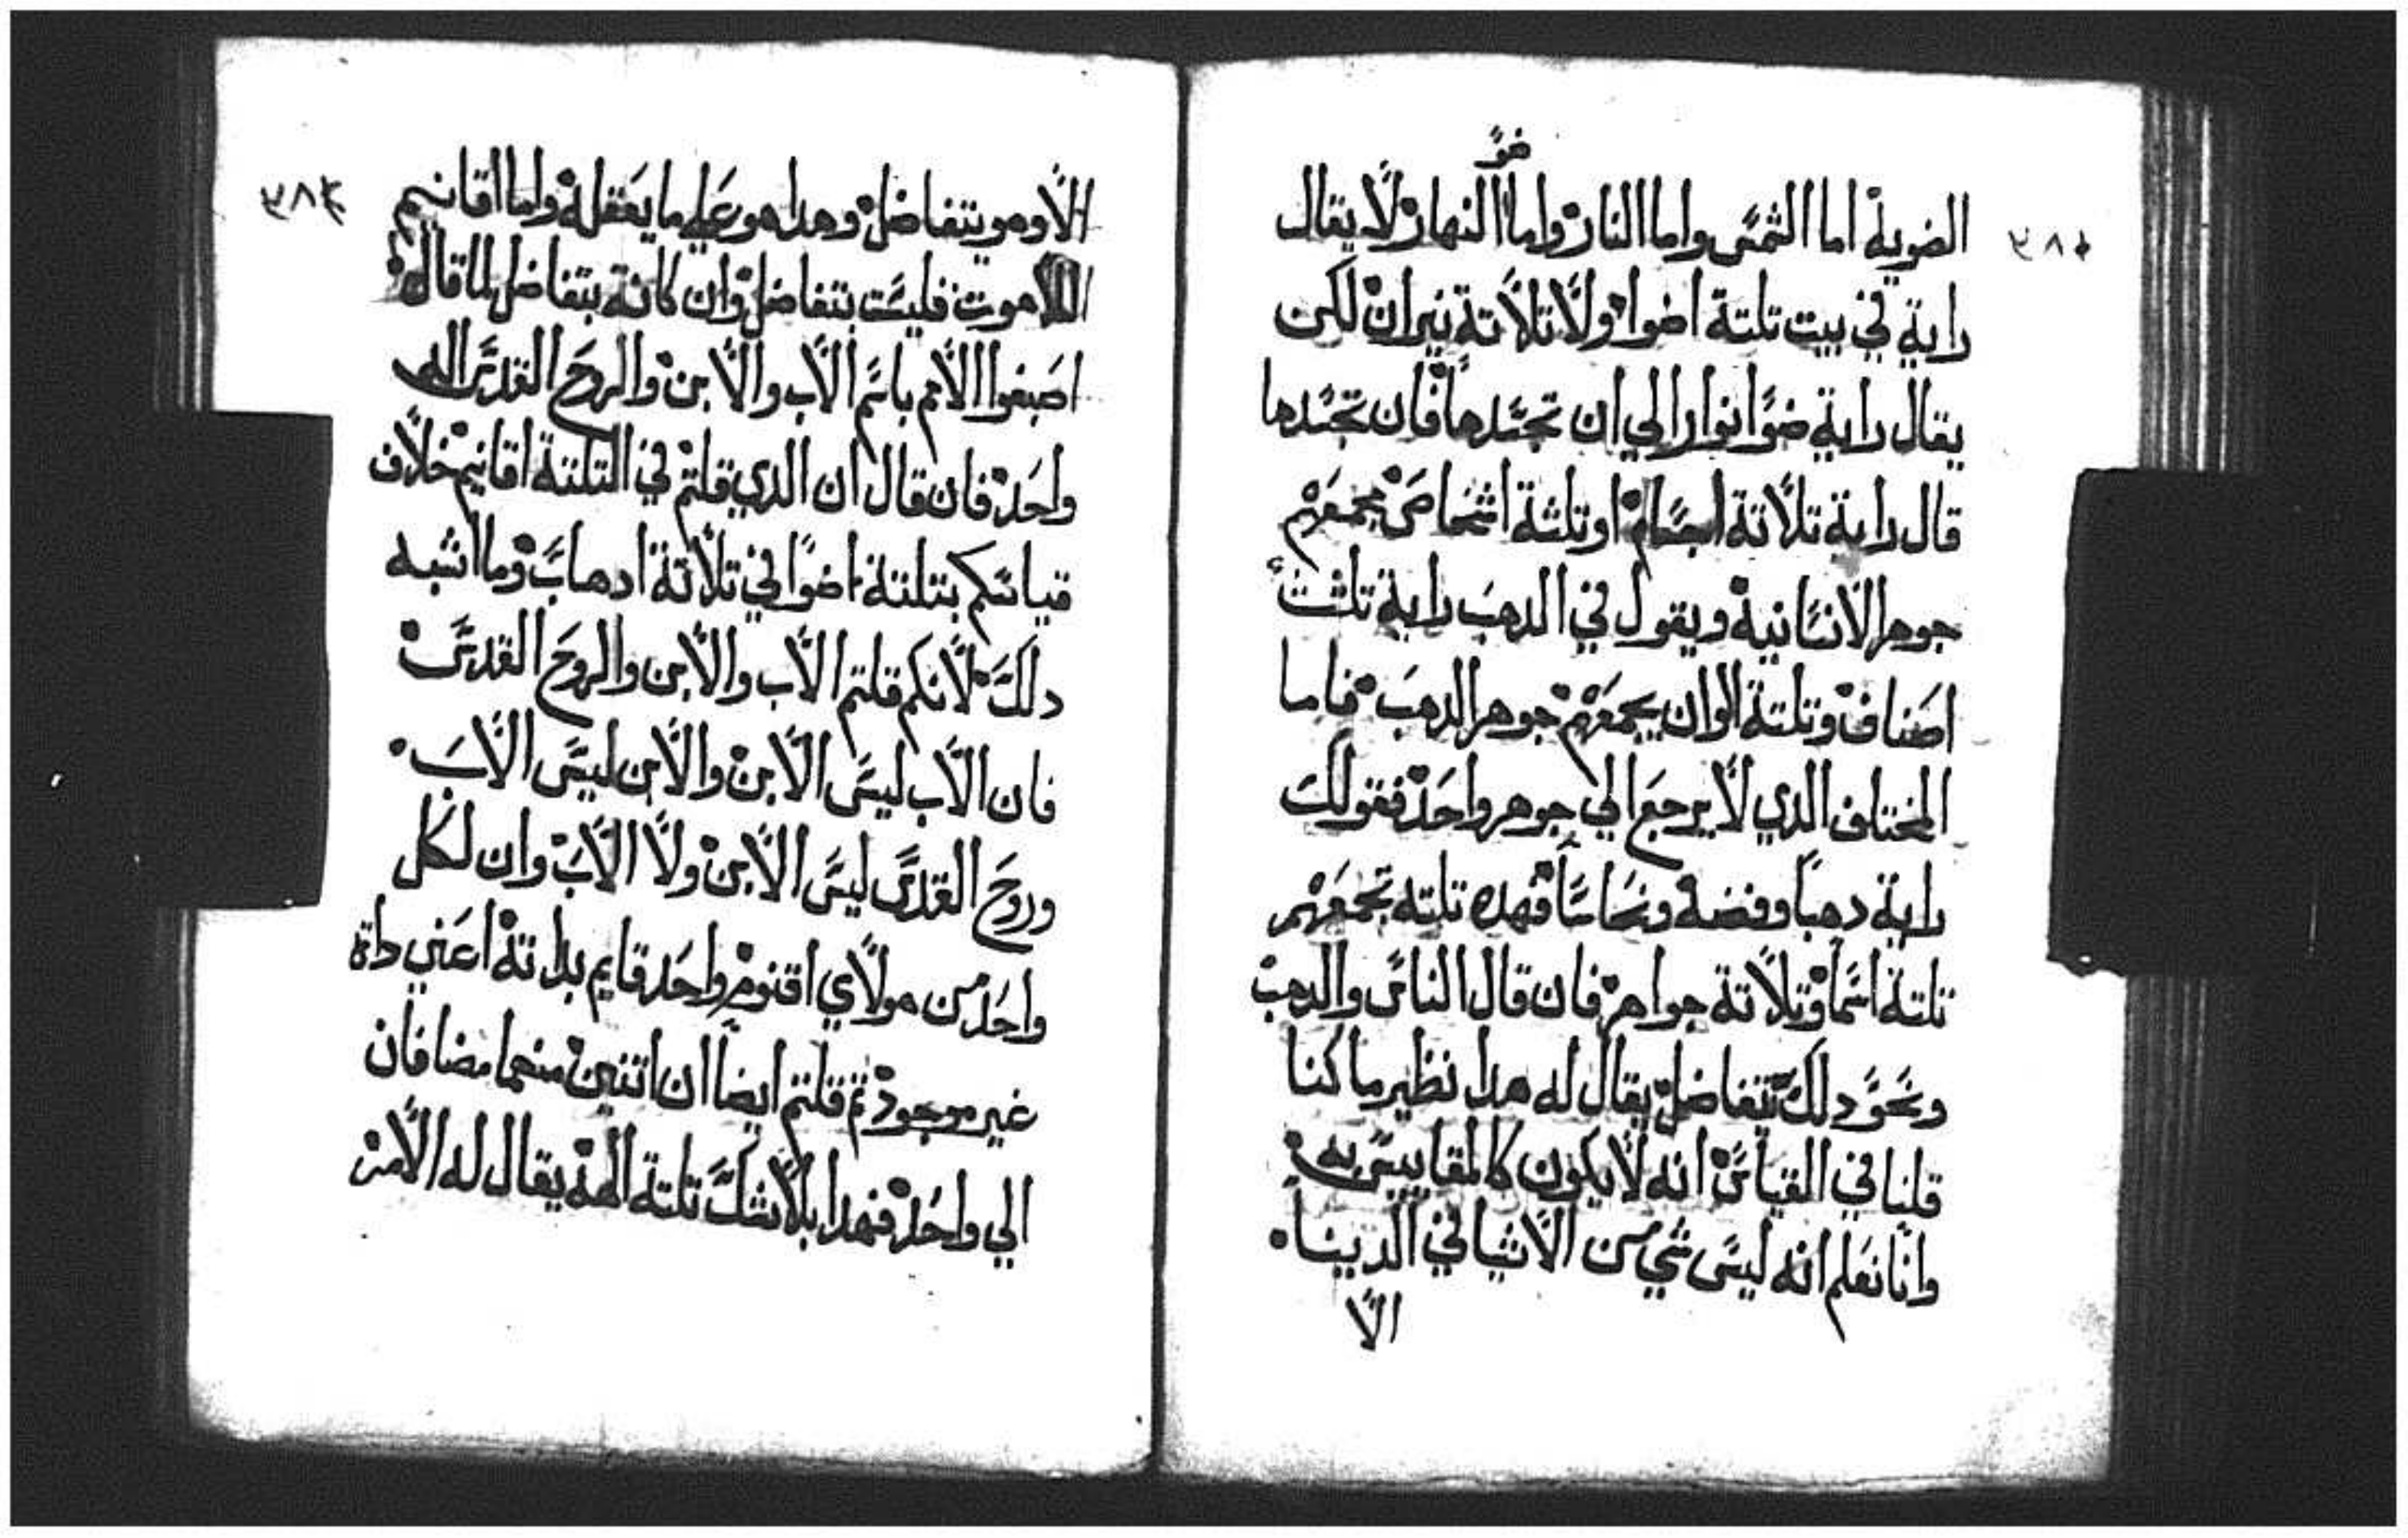 ضو
الضوية اما الشمس واما النار واما النهار لا يقال
٣٨١
راية في بيت تلتة اضوا ولا تلاتة نيران لكن
يقال راية ضوا نوارا الي ان تجسدها فان تجسدها
قال راية تلاتة اجسام او تلثة اشخاص يجمعهم
جوهر الانسانية ويقول في الدهب راية تلثت
اصناف وتلتة الوان يجمعهم جوهر الدهب فاما
المختلف الدي لا يرجع الي جوهر واحد فقولك
راية دهبا وفضة ونحاسا فهده تلته تجمعهم
تلتة اسما وتلاتة جواهر فان قال الناس والدهب
ونحو دلك تتفاضل يقال له هدا نظير ما كنا
قلنا في القياس انه لا يكون كالمقاييس به
وانا نعلم انه ليس شي من الاشيا في الدينا
الا
الا وهو يتفاضل وهدا هو علي ما يعقله واما اقانيم
٣٨٢
اللاهوت فليست بتفاضل وان كانة بتفاضل لما قال
اصبغوا الامم باسم الاب والابن والروح القدس اله
واحد فان قال ان الدي قلتم في التلتة اقانيم خلاف
قياسكم بتلتة اضوا في تلاتة ادهاب وما اشبه
دلك لانكم قلتم الاب والابن والروح القدس
فان الاب ليس الابن والابن ليس الاب
وروح القدس ليس الابن ولا الاب وان لكل
واحد من هولاي اقنوم واحد قايم بداته اعني داة
غير موجود تم قلتم ايضا ان اتنين منهما مضافان
الي واحد فهدا بلا شك تلتة الهة يقال له الامر